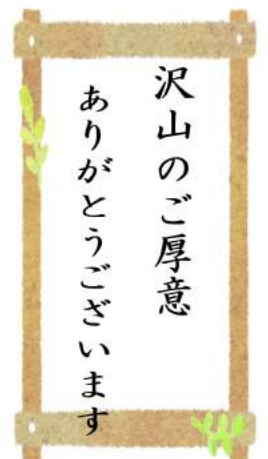 沢山のご厚意
ありがとうございます